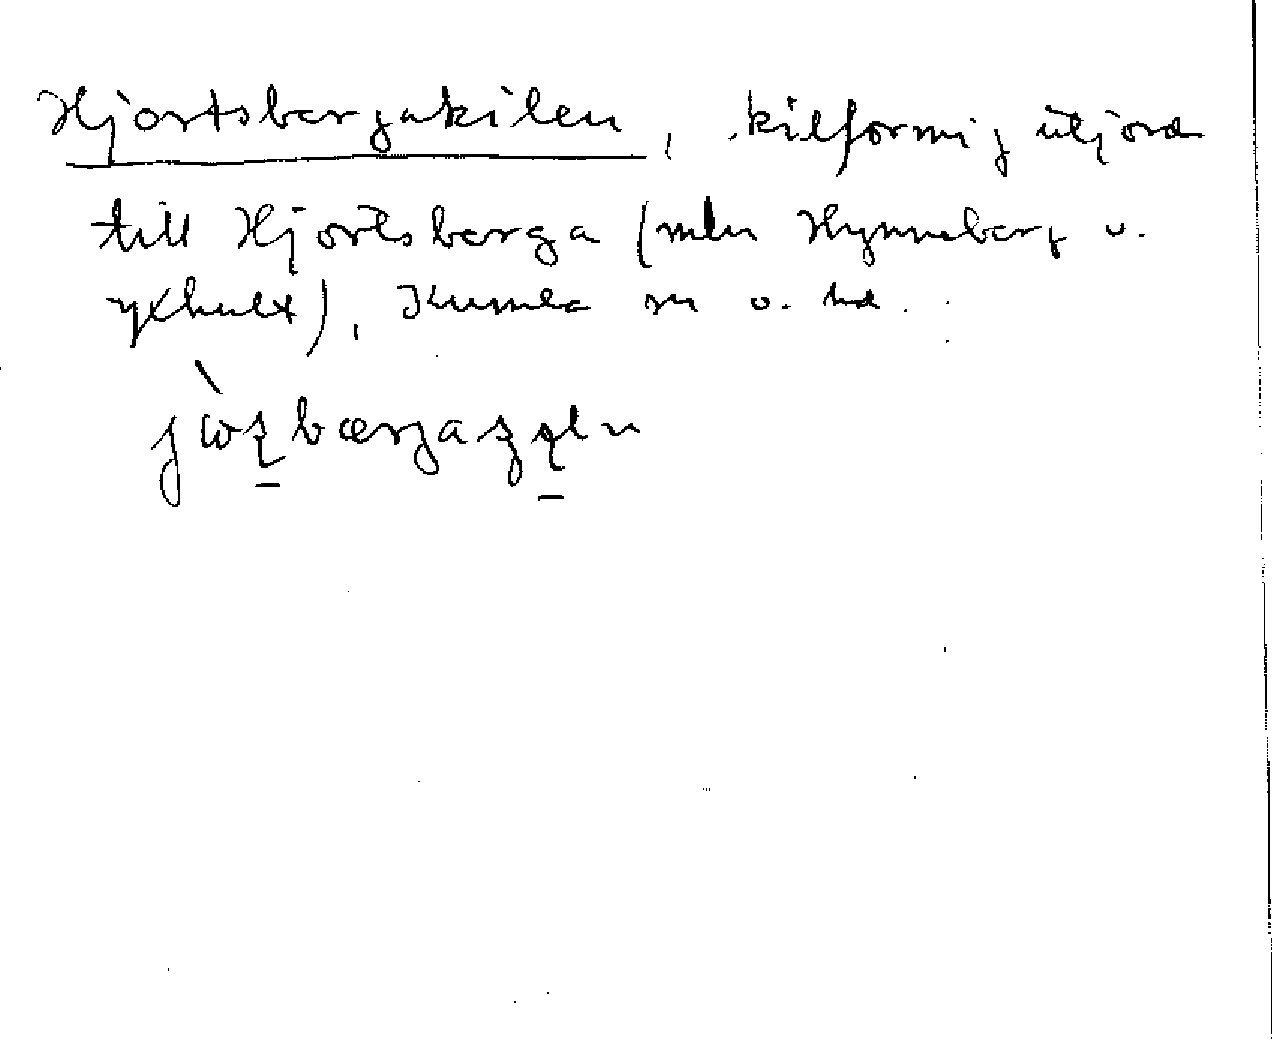 Hjortsbergakilen, kilformig utjord
till Hjortsberga (mln Hynneberg o.
Yxhult), Kumla sn o. hd.